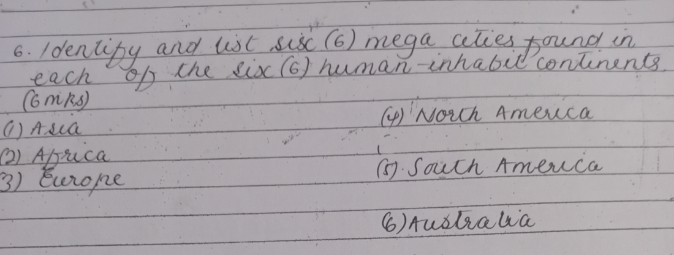 6. Identify and list six (6) mega cities found in
each of the six (6) human-inhabit continents.
(6mks)
(1) Asia
(2) Africa
3) Europe
(4) North America
(5). South America
(6) Australia